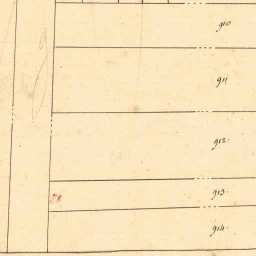 910
911
912.
913.
914.